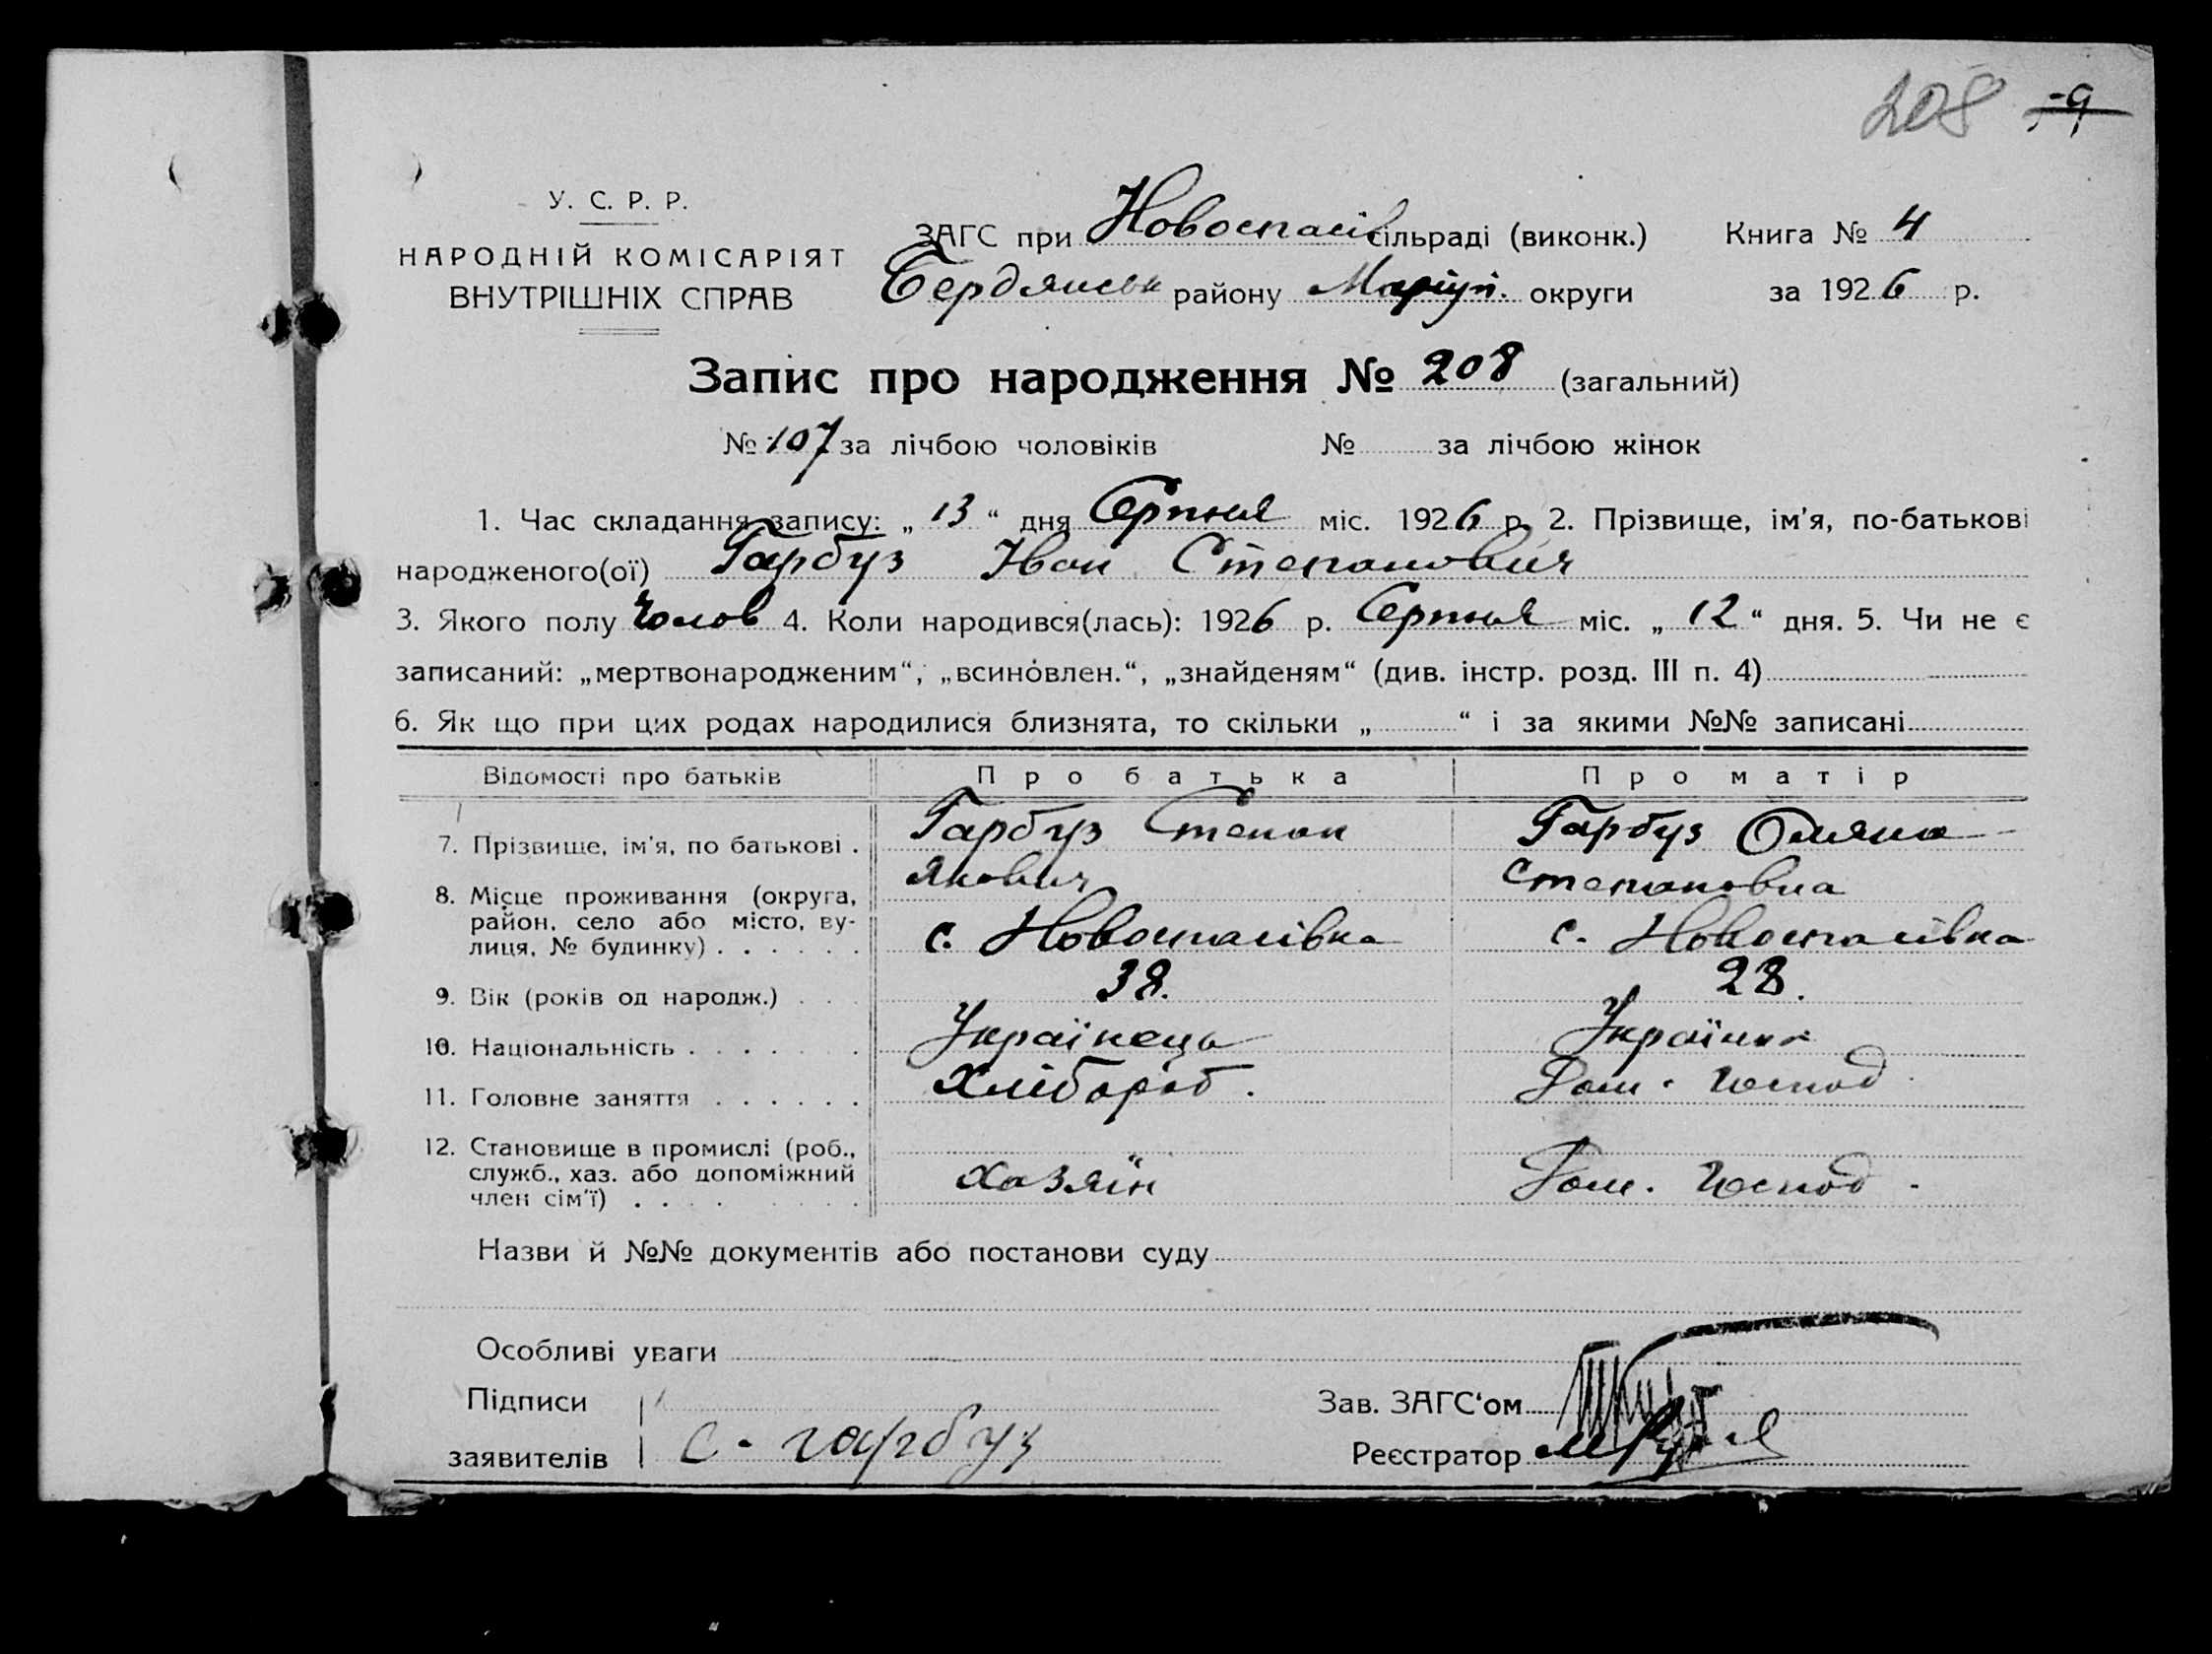 208 79
У. С. Р. Р.
НАРОДНІЙ КОМІСАРІЯТ
ВНУТРІШНІХ СПРАВ
ЗАГС при Новоспасів сільраді (виконк.) Книга № 4
Бердянськ району Маріуп. округи за 1926 р.
Запис про народження № 208 (загальний)
№ 107 за лічбою чоловіків № за лічбою жінок
1. Час складання запису: „ 13 “ дня Серпня міс. 1926 р. 2. Прізвище, ім'я, по-батькові
народженого(ої) Гарбуз Іван Степанович
3. Якого полу Чолов 4. Коли народився(лась): 1926 р. Серпня міс. „ 12 “ дня. 5. Чи не є
записаний: „мертвонародженим“, „всиновлен.“, „знайденям“ (див. інстр. розд. III п. 4)
6. Як що при цих родах народилися близнята, то скільки „ “ і за якими №№ записані
Відомості про батьків Про батька Про матір
7. Прізвище, ім'я, по батькові . Гарбуз Степан Гарбуз Оляна
Якович Степановна
8. Місце проживання (округа,
район, село або місто, ву-
лиця, № будинку) . . . . . . с. Новоспасівка с. Новоспасівка
9. Вік (років од народж.) . . . 38. 28.
10. Національність . . . . . . . Українець Українка
11. Головне заняття . . . . . . Хлібороб . Дом. Господ.
12. Становище в промислі (роб.,
служб., хаз. або допоміжний
член сім'ї) . . . . . . . . Хазяїн Дом. Господ.
Назви й №№ документів або постанови суду
Особливі уваги
Підписи Зав. ЗАГС'ом
заявителів с. гарбуз Реєстратор